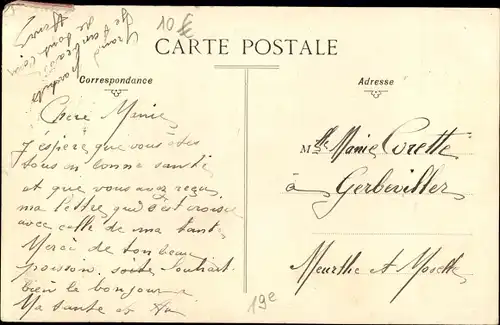 10 F
CARTE POSTALE
Correspondance
Adresse
Chère Marie
J'éspère que vous êtes
tous en bonne santé
et que vous avez reçu
ma lettre qui c'est croisée
avec celle de ma tante
Merci de ton beau
poisson. soite
bien le bonjour
Ma tante et
Mlle Marie Corette
à Gerbeviller
Meurthe et Moselle
19e